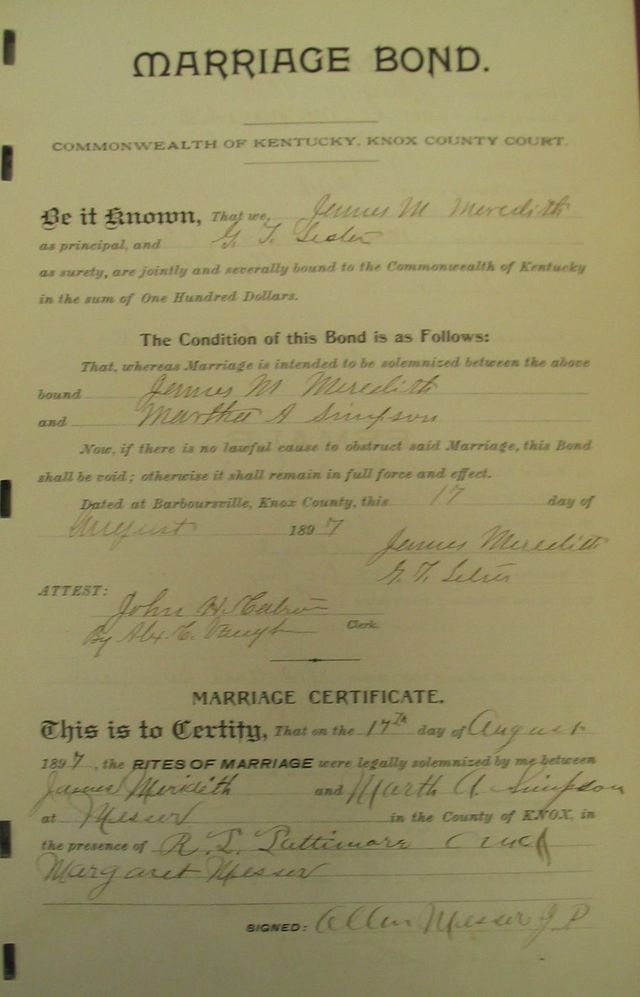 MARRIAGE BOND.
COMMONWEALTH OF KENTUCKY, KNOX COUNTY COURT.
Be it Known, That we, James M Meredith
as principal, and G. T.
as surety, are jointly and severally bound to the Commonwealth of Kentucky
in the sum of One Hundred Dollars.
The Condition of this Bond is as Follows:
That, whereas Marriage is intended to be solemnized between the above
bound James M Meredith
and Martha A Simpson
Now, if there is no lawful cause to obstruct said Marriage, this Bond
shall be void; otherwise it shall remain in full force and effect.
Dated at Barboursville, Knox County, this 17 day of
August 1897
James Meredith
G. T.
ATTEST:
John H
By Alex C. Vaughn Clerk.
MARRIAGE CERTIFICATE.
This is to Certify, That on the 17th day of August
1897, the RITES OF MARRIAGE were legally solemnized by me between
James Merideth and Marth A. Simpson
at Messer in the County of KNOX, in
the presence of R. L. and
Margaret Messer
SIGNED: Allen Messer J P